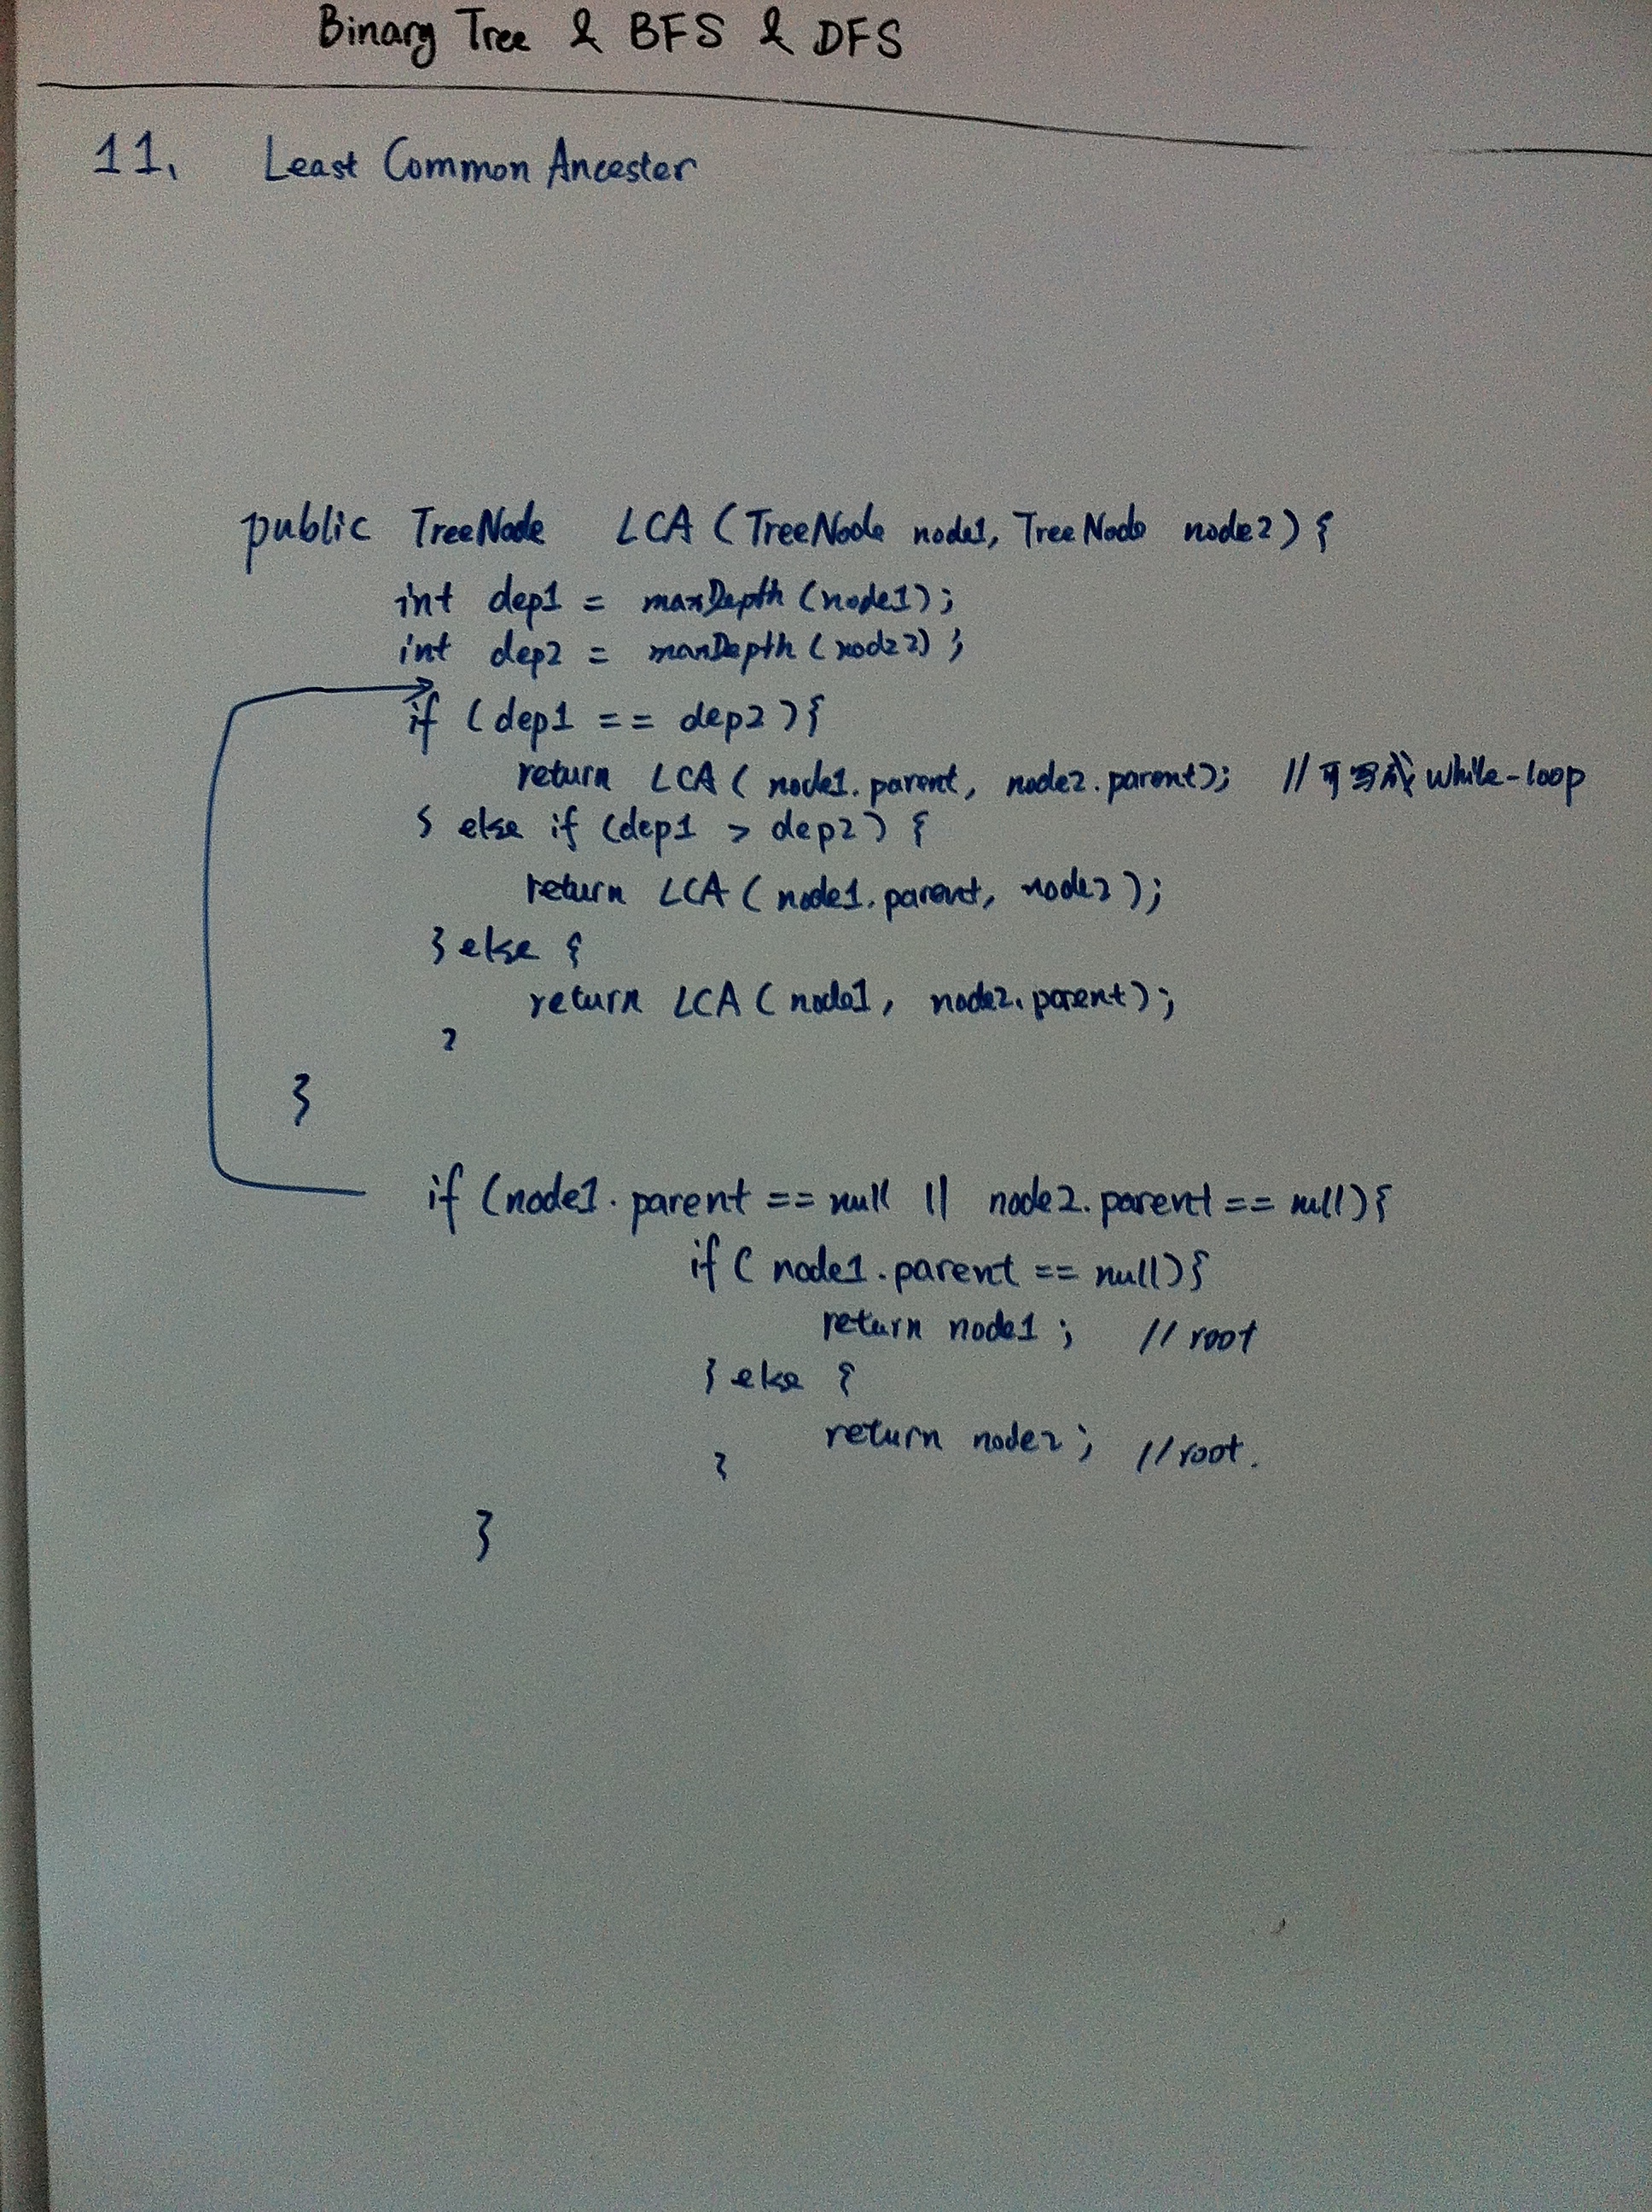 Binary Tree & BFS & DFS
11. Least Common Ancester
public TreeNode LCA (TreeNode node1, TreeNode node2) {
int dep1 = maxDepth (node1);
int dep2 = maxDepth (node2);
if (dep1 == dep2) {
return LCA ( node1.parent, node2.parent); // 可写成 while-loop
} else if (dep1 > dep2) {
return LCA ( node1.parent, node2 );
} else {
return LCA ( node1, node2.parent);
}
}
if (node1.parent == null || node2.parent == null) {
if ( node1.parent == null) {
return node1 ; // root
} else {
return node2 ; // root.
}
}